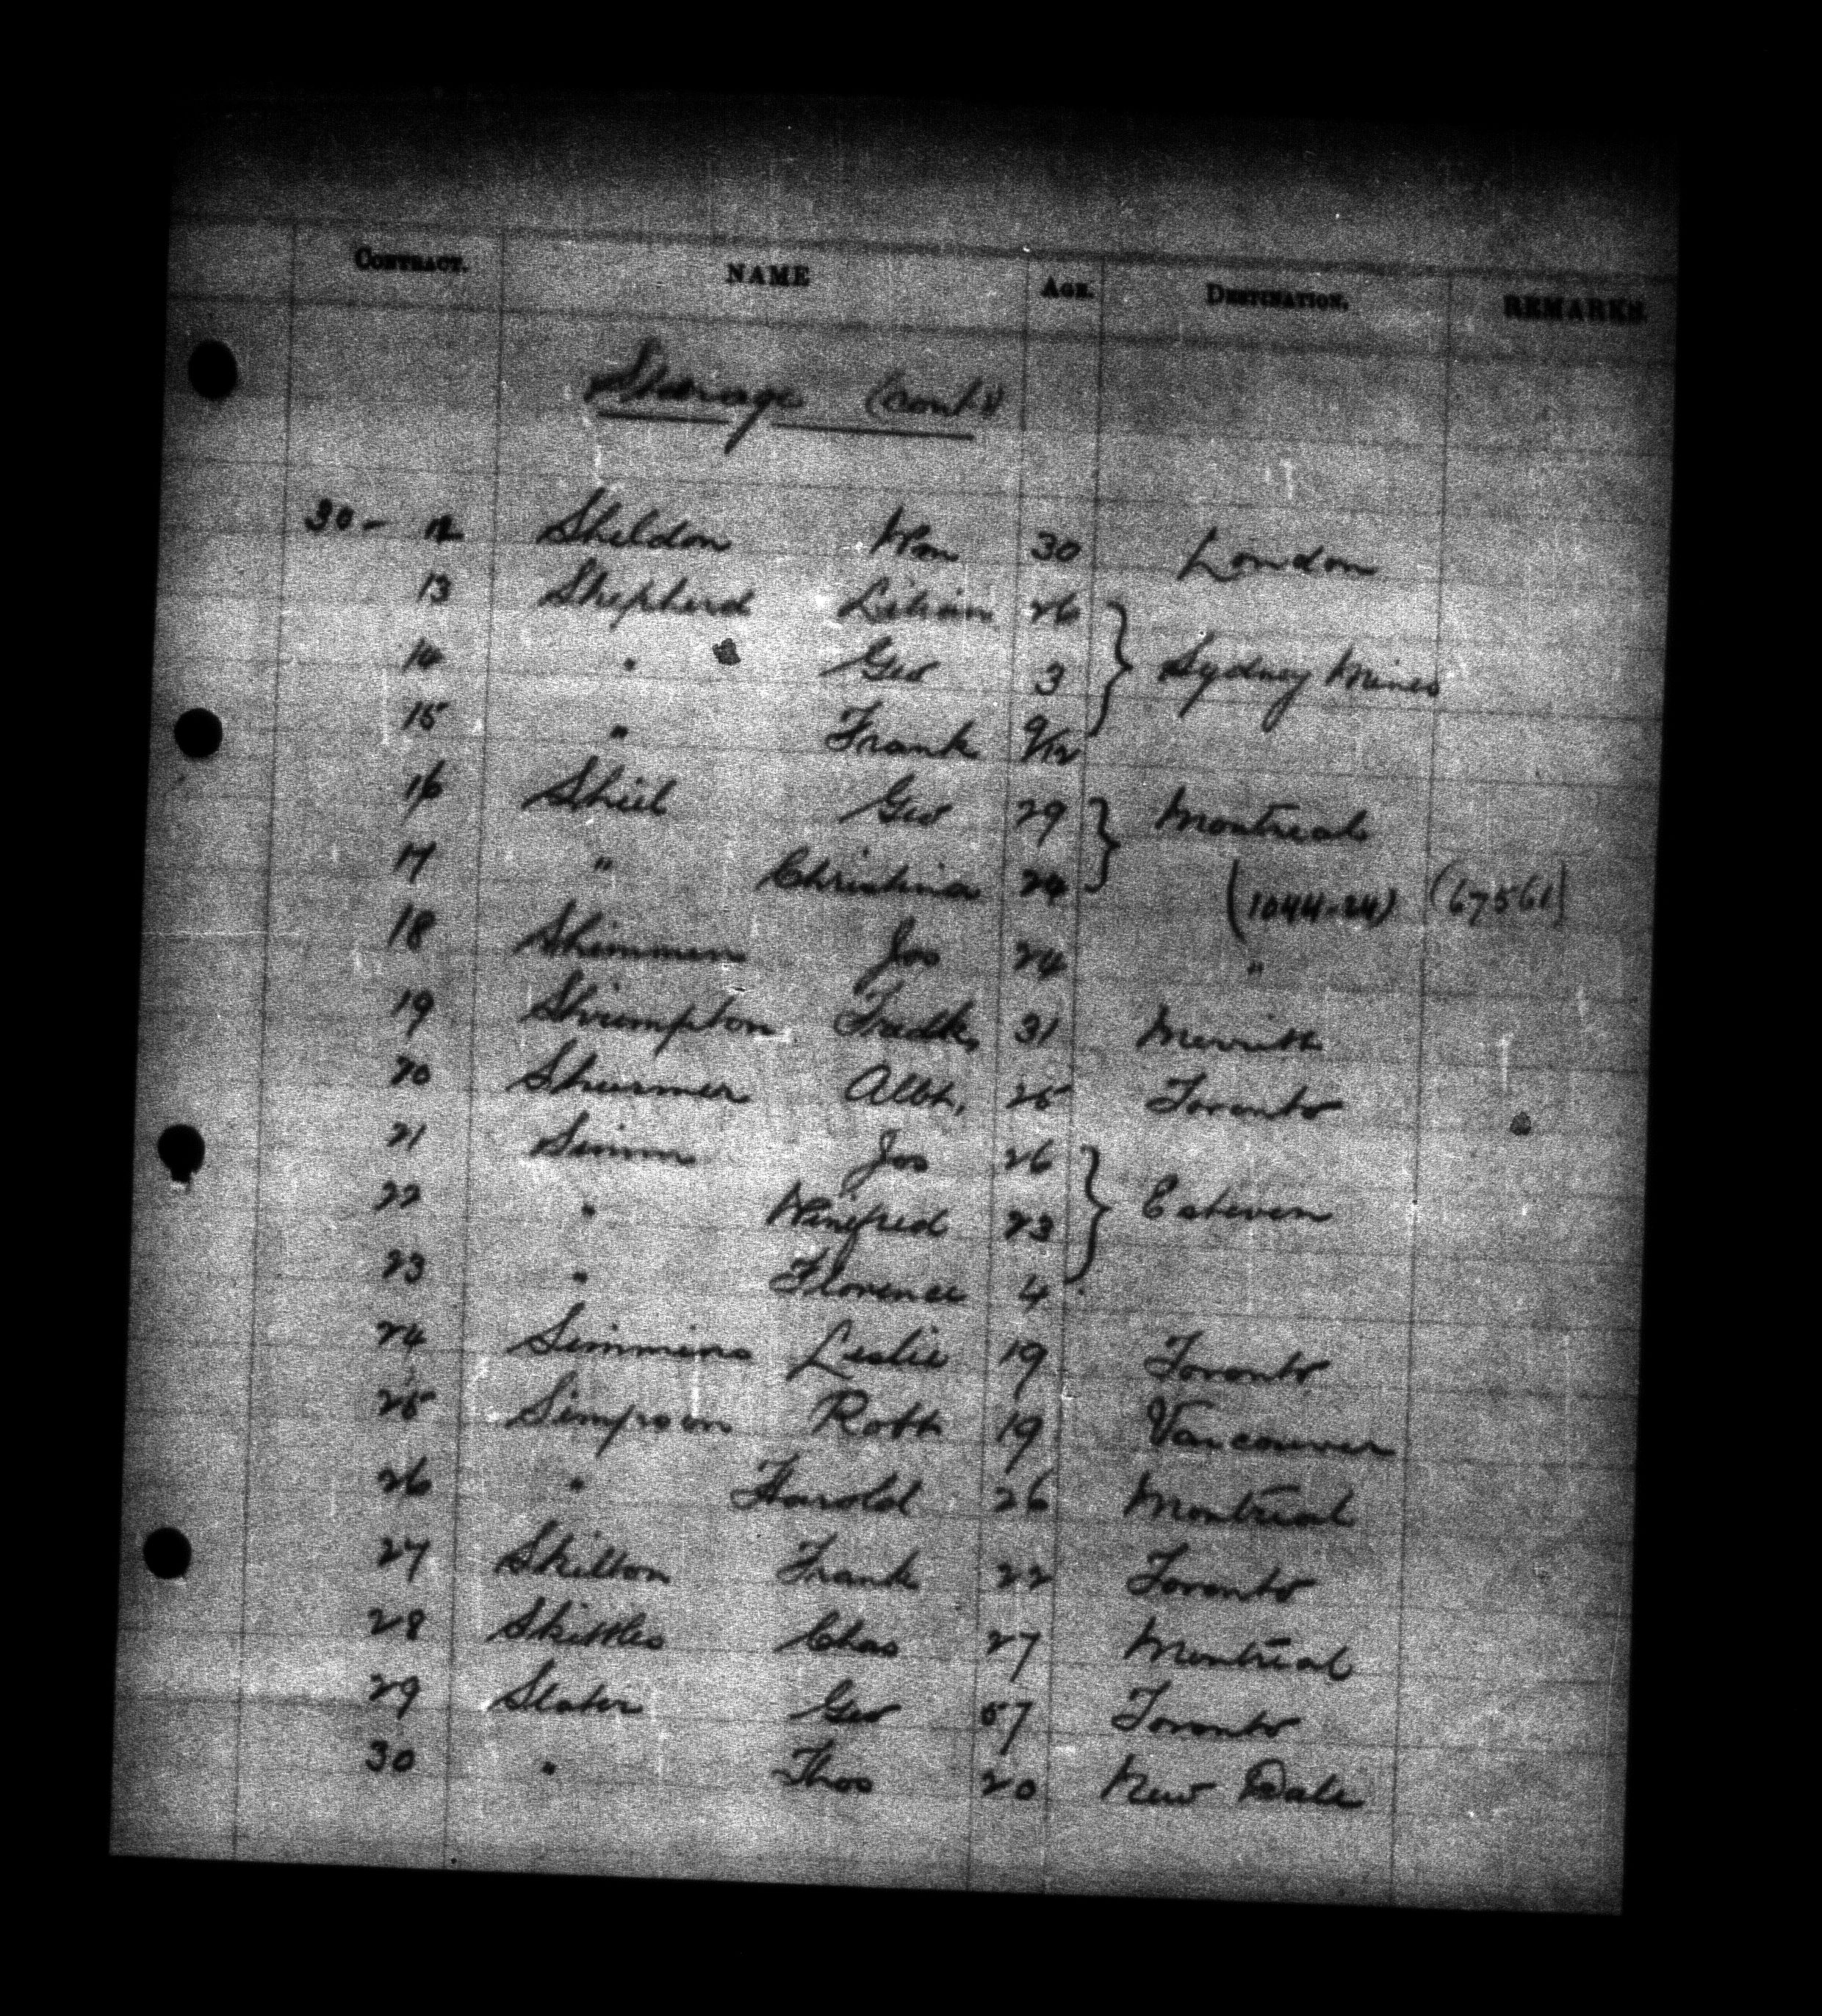 CONTRACT. NAME AGE. DESTINATION. REMARKS.
Steerage (cont'd)
30 - 12 Sheldon Wm 30 London
13 Shepherd Lilian 26
14 " Geo 3 } Sydney Mines
15 " Frank 9/12
16 Shiel Geo 29 } Montreal
17 " Christina 24 (1044-24) (67561)
18 Shimmen Jos 24 "
19 Shrimpton Fredk, 31 Merritt
20 Shurmer Albt, 25 Toronto
21 Simm Jos 26
22 " Winifred 23 } Esteven
23 " Florence 4
24 Simmins Leslie 19 Toronto
25 Simpson Robt 19 Vancouver
26 " Harold 26 Montreal
27 Skilton Frank 22 Toronto
28 Skittles Chas 27 Montreal
29 Slater Geo 57 Toronto
30 " Thos 20 New Dale